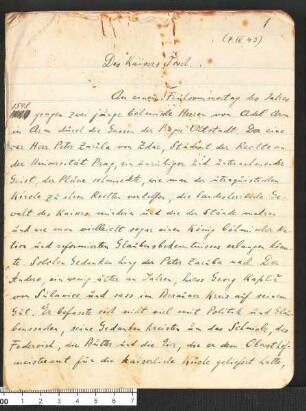 1
(7.IX.43)
Des Kaisers Tisch.
An einem Frühsommertag des Jahres
1598 gingen zwei junge böhmische Herren von Adel Arm
in Arm durch die Gassen der Prager Altstadt. Der eine
war Herr Peter Zaruba von Zdar, Student der Rechte an
der Universität Prag, ein unruhiger und unternehmender
Geist, der Pläne schmiedete, wie man der utraquistischen
Kirche zu ihren Rechten verhelfen, die landesherrliche Ge-
walt des Kaisers mindern und die der Stände mehren
und wie man vielleicht sogar einen König böhmischer Na-
tion und reformierten Glaubensbekenntnisses erlangen könn-
te. Solchen Gedanken hing der Peter Zaruba nach. Der
Andere, ein wenig älter an Jahren, hiess Georg Kapliř
von Sulavice und sass im Berauner Kreis auf seinem
Gut. Er befasste sich nicht viel mit Politik und Glau-
benssachen, seine Gedanken kreisten um das Schmalz, das
Federvieh, die Butter und die Eier, die er dem Oberstkü-
chenmeisteramt für die kaiserliche Küche geliefert hatte,
00 1 2 3 4 5 6 7